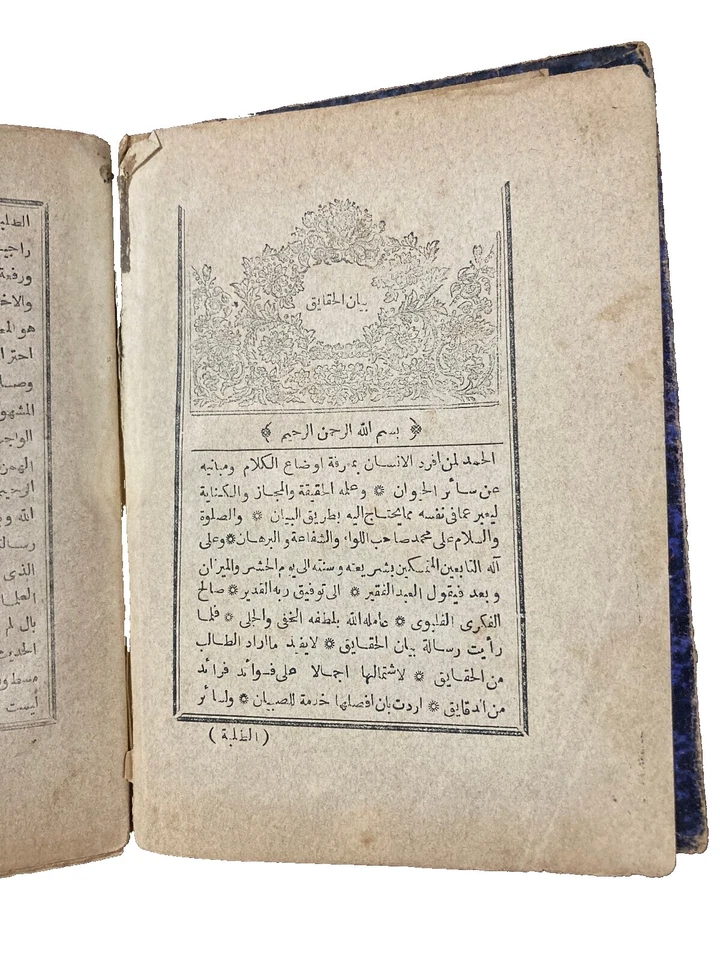 بيان الحقايق
بسم الله الرحمن الرحيم
الحمد لمن أفرد الانسان بمعرفة اوضاع الكلام ومبانيه
عن سائر الحيوان ۞ وعلمه الحقيقة والمجاز والكناية
ليعبر عما فى نفسه مما يحتاج اليه بطريق البيان ۞ والصلوة
والسلام على محمد صاحب اللواء والشفاعة والبرهان ۞ وعلى
آله التابعين المتمسكين بشريعته وسنته الى يوم الحشر والميزان
وبعد فيقول العبد الفقير ۞ الى توفيق ربه القدير ۞ صالح
الفكرى الفلبوى ۞ عامله الله بلطفه الخفى والجلى ۞ فلما
رأيت رسالة بيان الحقايق ۞ لا يفيد ما اراد الطالب
من الحقايق ۞ لاشتمالها اجمالا على فوائد فرائد
من الدقايق ۞ اردت بان افصلها خدمة للصبيان ۞ ولسائر
(الطلبة)
الطلبة
ورفعة
هو المع
احترا
وصا
المشهو
الواجب
الرحيم
الله و
رسالة
الذى
العلما
بال لم
أيست